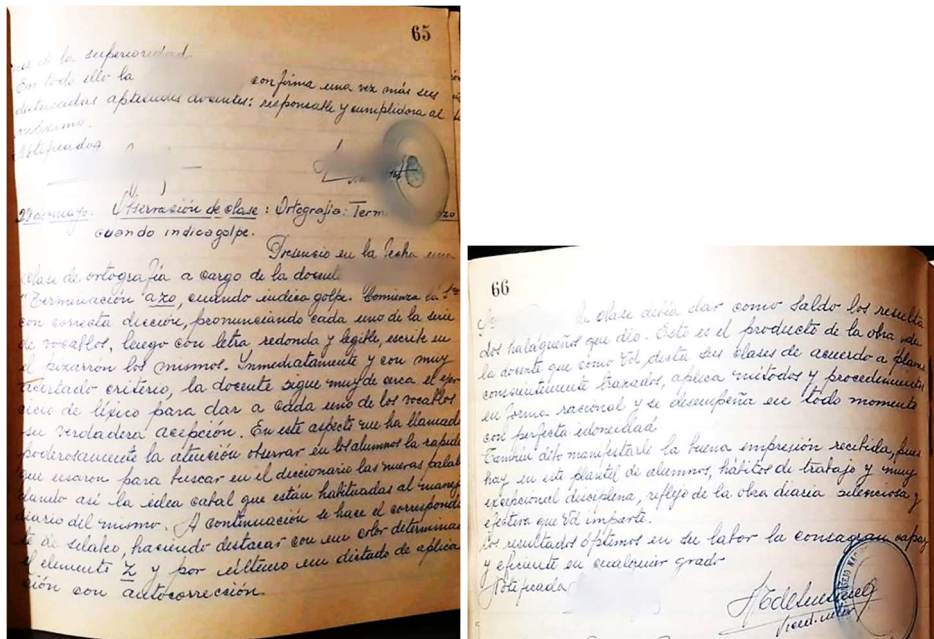 65
de la superioridad
En todo ello la confirma una vez más sus
destacadas aptitudes docentes: responsable y cumplidora al
máximo.
Notificada
29 de mayo. Observación de clase: Ortografía: Term zo
cuando indica golpe.
Presencio en la fecha una
clase de ortografía a cargo de la docente
"Terminación azo, cuando indica golpe. Comienza la
con correcta dicción, pronunciando cada uno de la serie
de vocablos, luego con letra redonda y legible, escribe en
el pizarrón los mismos. Inmediatamente y con muy
acertado criterio, la docente sigue muy de cerca el ejer
cicio de léxico para dar a cada uno de los vocablos
su verdadera acepción. En este aspecto me ha llamado
poderosamente la atención observar en los alumnos la rapide
que usaron para buscar en el diccionario las nuevas palab
dando así la idea cabal que están habituadas al manej
diario del mismo. A continuación se hace el correspond
te de silabeo, haciendo destacar con un color determinad
el elemento z y por último un dictado de aplica
ción con autocorrección.
66
la clase debía dar como saldo los resulta
dos halagüeños que dio. Este es el producto de la obra de
la docente que como Ud. dicta sus clases de acuerdo a planes
conscientemente trazados, aplica métodos y procedimientos
en forma racional y se desempeña en todo momento
con perfecta idoneidad
También debo manifestarle la buena impresión recibida, pues
hay en este plantel de alumnos, hábitos de trabajo y muy
excepcional disciplina, reflejo de la obra diaria silenciosa y
efectiva que Ud imparte.
Los resultados óptimos en su labor la consagran capaz
y eficiente en cualquier grado
Notificada